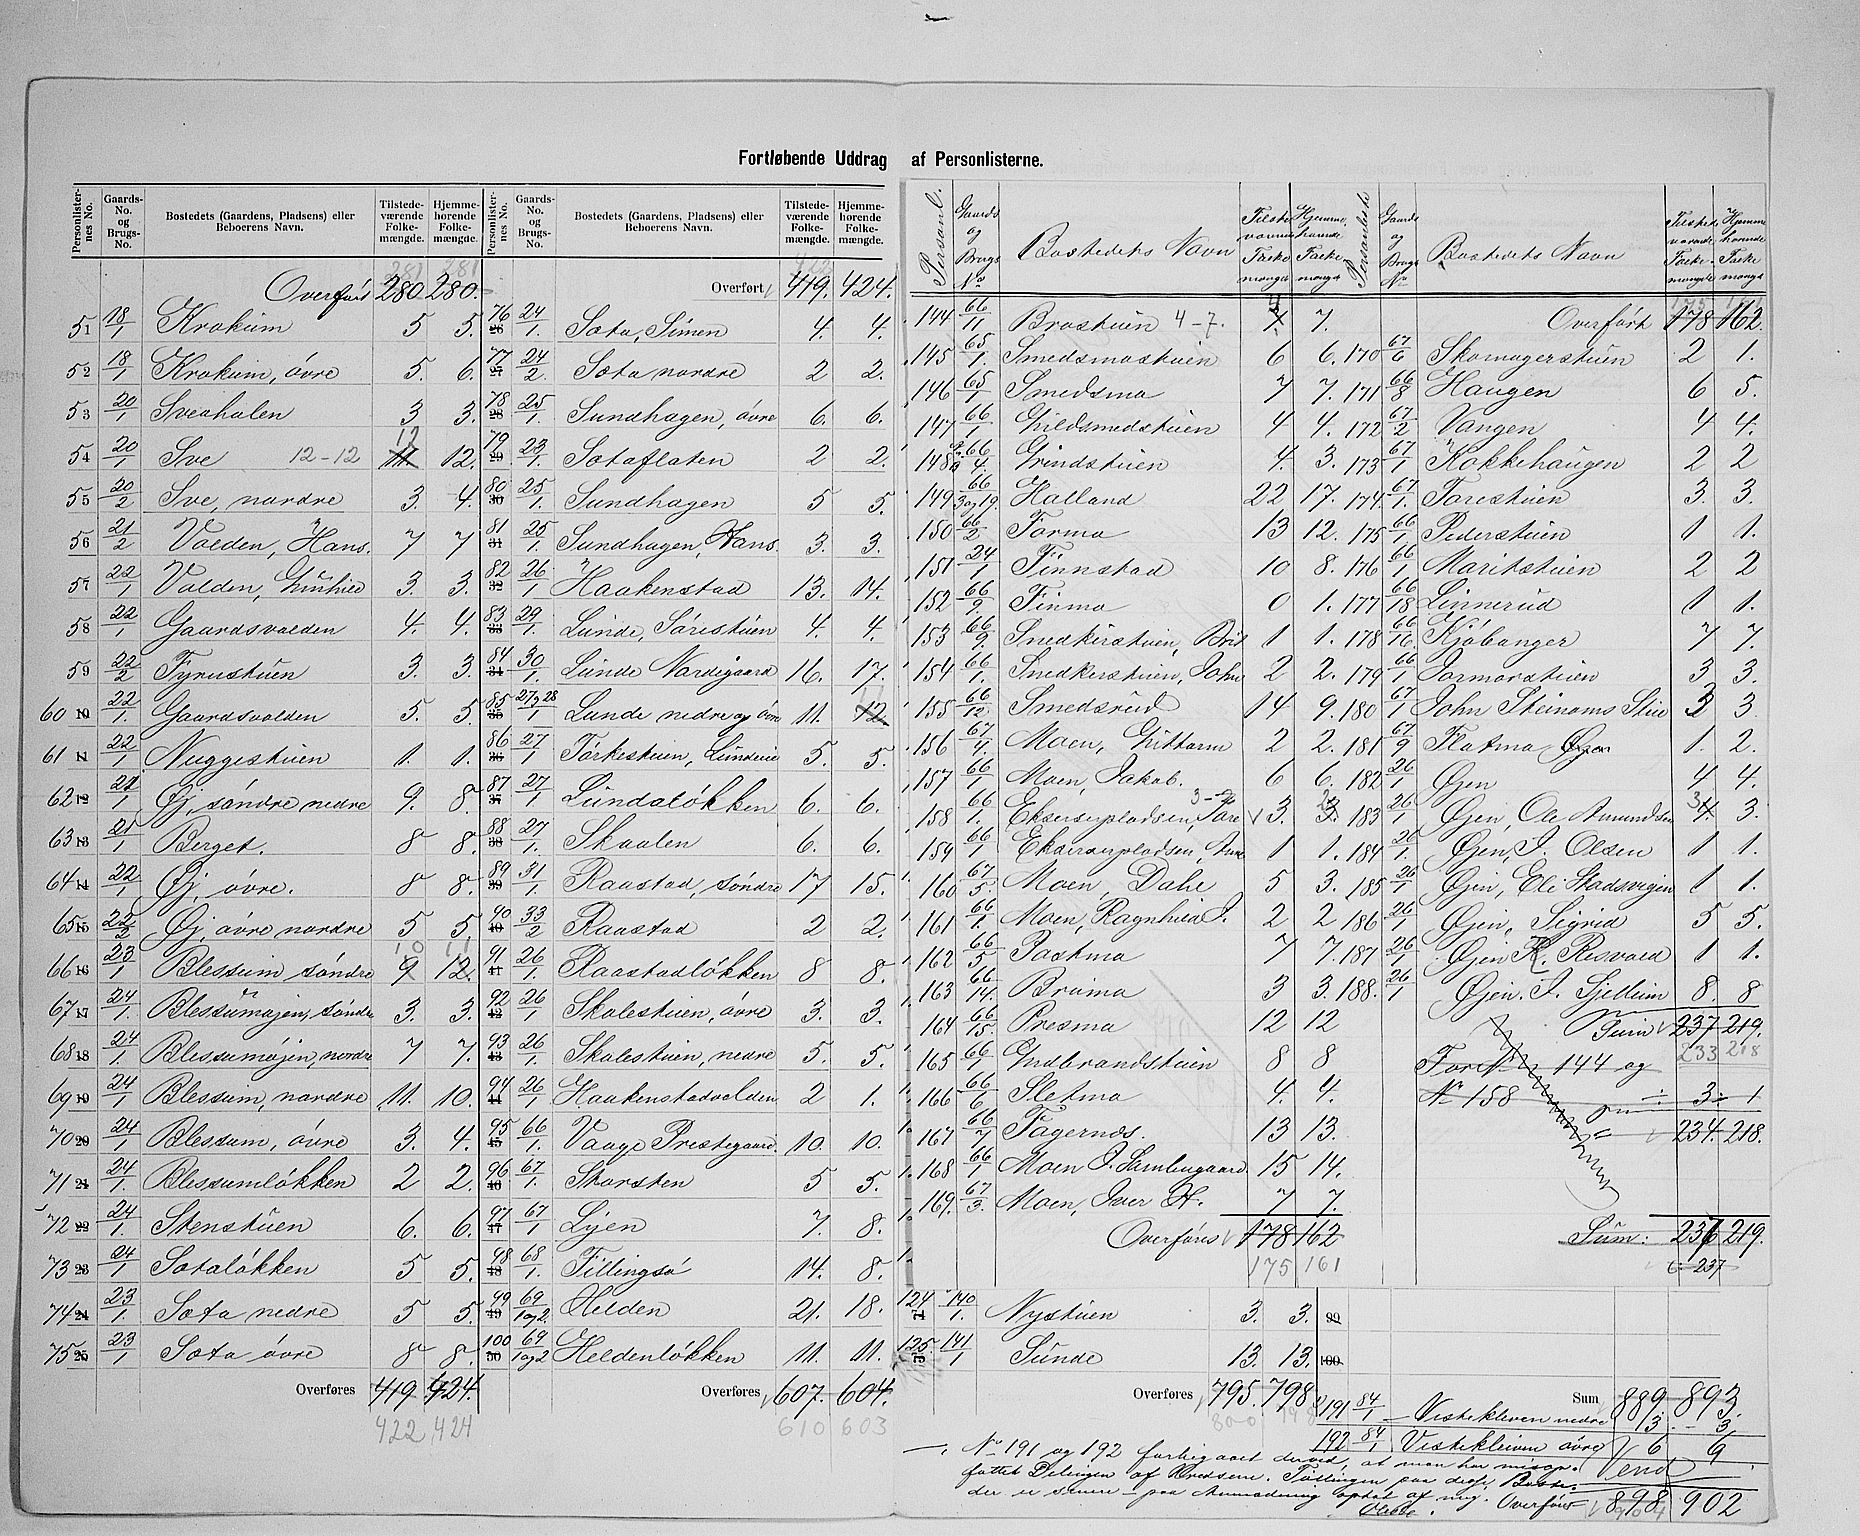 Fortløbende Uddrag af Personlisterne.
Personlisternes No. | Gaards-No. og Brugs-No. | Bostedets (Gaardens, Pladsens) eller Beboerens Navn. | Tilstedeværende Folkemængde. | Hjemmehørende Folkemængde.
281 281
Overført 280 280.
51 18/1 Krokum 5 5.
52 18/1 Krokum, övre 5. 6.
53 20/1 Sveahalen 3 3.
54 20/1 Sve 12-12 12 12.
55 20/2 Sve, nordre 3. 4.
56 21/2 Valden, Hans. 7 7
57 22/1 Valden, 3. 3.
58 22/1 Gaardsvolden 4. 4.
59 22/2 Fyrustuen 3. 3.
60 10 22/1. Gaardsvolden 5. 5.
61 11 22/1 Nuggestuen 1. 1.
62 12 21/1 Øj, söndre nedre 9. 8.
63 13 21/1 Berget. 8 8.
64 14 22/1 Øj, övre. 8 8.
65 15 22/2 Øj, övre nordre 5 5
66 16 23/1 Blessum söndre 9 12. 10 11
67 17 24/1. Blessumöjen, söndre 3. 3.
68 18 24/1. Blessumöjen, nordre 7 7.
69 19 24/1 Blessum, nordre 11. 10.
70 20 24/1 Blessum, övre 3. 4.
71 21 24/1. Blessumlökken 2 2.
72 22 24/1. Stenstuen 6. 6.
73 23 24/1 Sotalökken 5 5.
74 24 23/1. Sota nedre 5 5.
75 25 23/1 Sota övre 8 8.
Overføres 419 424.
422 424
Personlisternes No. | Gaards-No. og Brugs-No. | Bostedets (Gaardens, Pladsens) eller Beboerens Navn. | Tilstedeværende Folkemængde. | Hjemmehørende Folkemængde.
422
Overført 419. 424.
76 26 24/1. Sota, Simen 4. 4.
77 27 24/2. Sota nordre 2 2.
78 28 25/1. Sundhagen, övre 6. 6.
79 29 23/1. Sotaflaten 2 2.
80 30 25/1. Sundhagen 5 5.
81 31 25/1. Sundhagen, Hans. 3. 3.
82 32 26/1 Haakenstad 13. 14.
83 33 29/1. Lunde, Sörestuen 4. 4.
84 34 30/1. Lunde Nordigaard 16. 17.
85 35 27og28/1 Lunde nedre og övre 11. 12
86 36 27/1 Törkestuen, 5. 5.
87 37 27/1 Lundalökken 6. 6.
88 38 27/1. Skaalen 6. 6.
89 39 31/1 Raastad, söndre 17 15.
90 40 33/2 Raastad 2 2.
91 41 26/1. Raastadlökken 8 8.
92 42 26/1 Skolestuen, övre 3. 3.
93 43 26/1 Skolestuen, nedre 5. 5.
94 44 26/1 Haakenstadvolden 2 1.
95 45 66/1. Vaage Prestegaard. 10. 10.
96 46 67/1. Skorsten 5 5.
97 47 67/1 Lyen 7. 8.
98 48 68/1. Tillingsö 14. 8.
99 49 69/1og2. Helden 21. 18.
100 50 69/1og2 Heldenlökken 11. 11.
Overføres 607. 604.
610 603
Personl. | Gaards og Brugs No | Bostedets Navn | Tilstedeværende Folkemængde | Hjemmehørende Folkemængde
144 66/11 Brostuen 4-7. 4 7.
145 65/1. Smedsmostuen 6 6.
146 65/1 Smedsmo 7 7.
147 66/1 Guldsmedstuen 4 4.
148 66/4. Grindstuen 4. 3.
149 66/3og19. Halland 22 17.
150 66/2 Formo 13 12.
151 24/1 Finnstad 10 8.
152 66/9. Finmo 0 1.
153 66/9. Snedkerstuen, Brit 1 1.
154 66/1. Snedkerstuen, John 2 2.
155 66/12. Smedsrud 14 9.
156 67/4. Moen, Guttorm 2 2.
157 66/1 Moen, Jakob. 6 6.
158 66/1. Eksercerpladsen, Tore 3. 3.
159 66/1 Eksercerpladsen, 1 1.
160 67/5. Moen, Dahl 5 3.
161 66/1. Moen, Ragnhild J. 2 2
162 66/5 Postmo 7 7.
163 66/14. Bruma 3 3.
164 66/15. Presmo 12 12
165 66/1 Gudbrandstuen 8 8
166 66/6 Sletmo 4. 4.
167 66/7 Fagernes. 13 13.
168 66/1 Moen J. Sambugaard. 15 14.
169. 67/3. Moen, Iver H. 7 7.
Overføres 178 162
175 161
124 71 140/1. Nystuen 3. 3.
125. 141/1 Sunde 13. 13.
Overføres 795. 798
800 798
Personliste | Gaards og Brugs No | Bostedets Navn | Tilstedeværende Folkemængde | Hjemmehørende Folkemængde
175 161
Overført 178 162.
170 67/6 Skomagerstuen 2 1.
171 66/8 Haugen 6 5.
172 67/2 Vangen 4 4.
173 67/1 Kokkehaugen 2 2
174. 67/1. Torestuen 3. 3.
175 66/1 Pederstuen 1 1.
176 66/1 Maritstuen 2 2
177 66/18 Linnerud 1 1.
178 66/10. Kjöbanger 7 7.
179 66/1 Jormorstuen 3 3.
180 67/1 John Steinoms Stue 3 3
181 67/9 Flatmo Øyen 1. 2.
182 26/1 Øjen 4 4.
183 26/1. Øjen, Ole Amundsen 4. 3.
184 26/1. Øjen, J. Olsen 1 1.
185 26/1 Øjen, Eli Stadsvigen 1 1.
186 26/1 Øjen, Sigrid 5 5.
187 26/1 Øjen K. Risvold 1 1.
188. 26/1 Øjen. J. Sjellum 8. 8
Sum 237 219.
233 218
For No 144 og
No 158 ÷ 3 ÷ 1
234. 218.
Sum: 236 219.
237
99
100
Sum 889 893.
191 84/1 – Vistekleven nedre 3. 3
192 84/1 Vistekleiven övre 6 6
Vend
No 191 og 192 foreligger derved, at man har misop-
fattet Delingen af Kredsene. Tællingen paa disse Boste-
der er senere – paa Anmodning optat af mig. Overføres 898 902
904